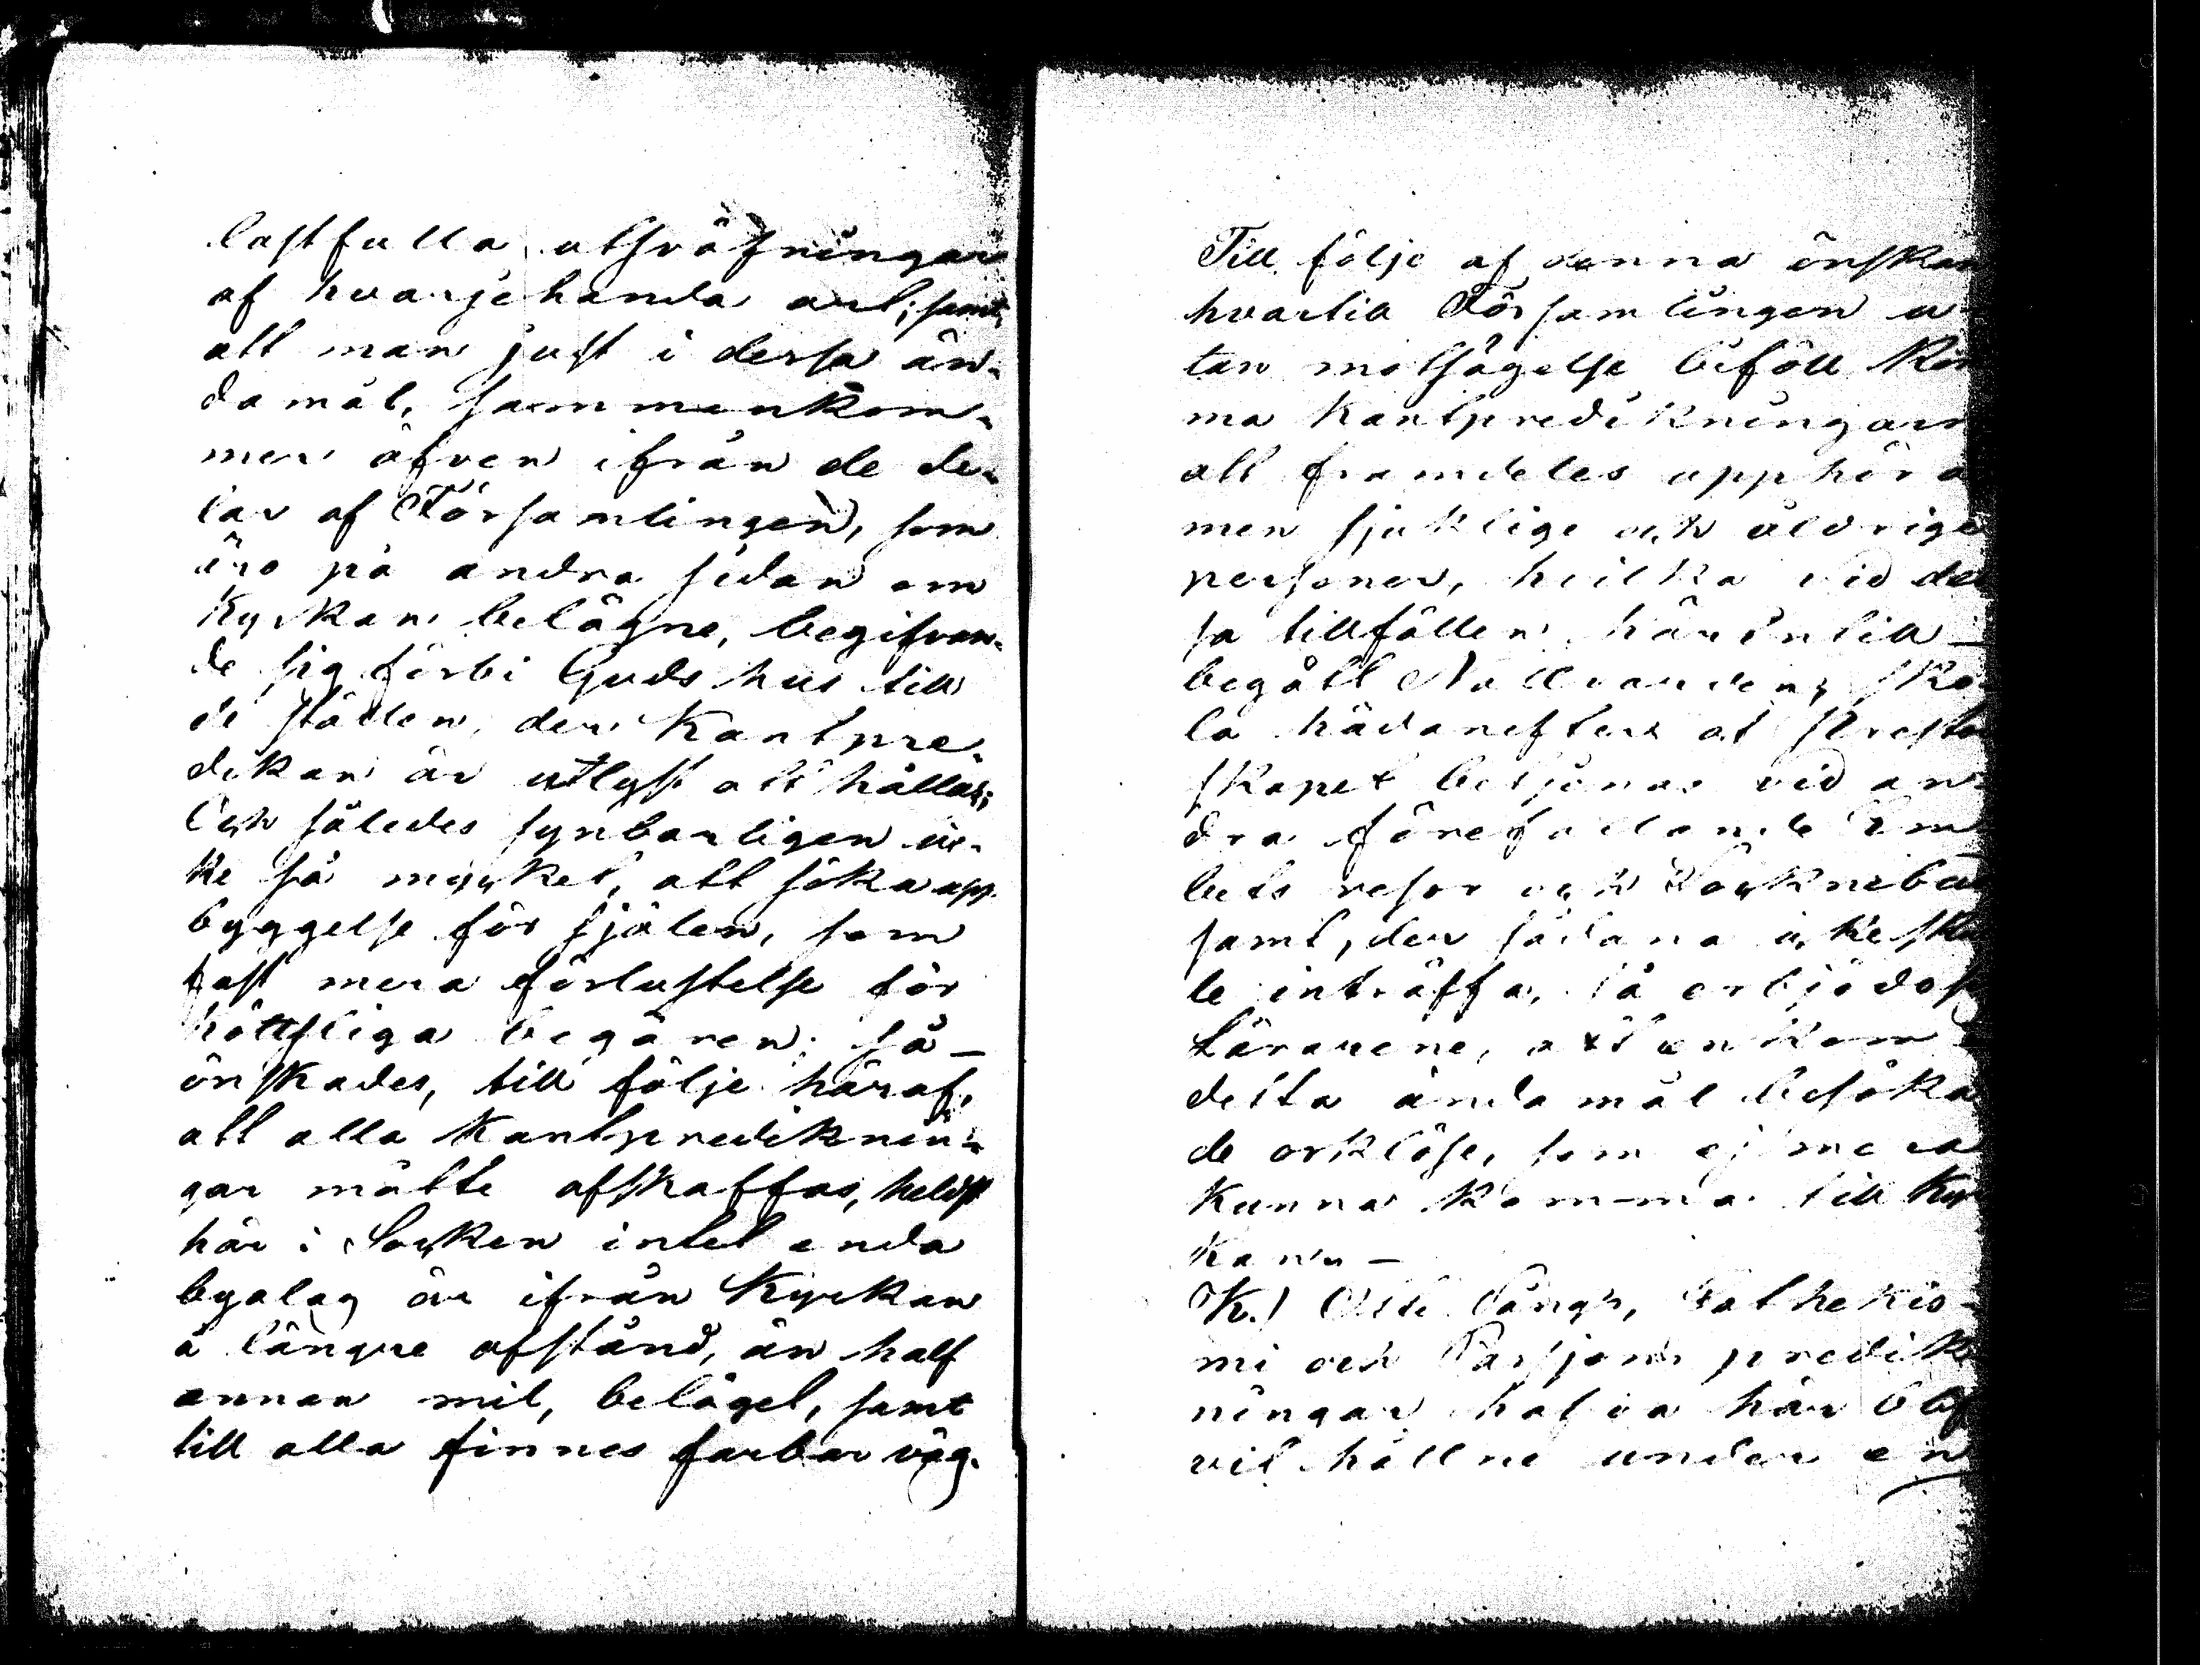 lastfulla utsväfningar
af hvarjehanda art; samt,
att man just i dessa än-
damål, sammankom-
mer äfven ifrån de de-
lar af Församlingen, som
äro på andra sidan om
Kyrkan belägne, begifvan-
de sig förbi Guds hus till
de ställen, der Kantpre-
dikan är utlyst att hållas;
Och således synbarligen ic-
ke så mycket, att söka upp-
byggelse för själen, som
fast mera förlustelse för
köttsliga begären; så –
önskades, till följe häraf,
att alla Kantprediknin-
gar måtte afskaffas, heldst
här i Socken intet enda
byalag är ifrån Kyrkan
å längre afstånd, än half
annan mil, belägel, samt
till alla finnes farbar väg.
Till följe af denna önskan
hvartill Församlingen u-
tan motsägelse biföll kom
ma Kantpredikningarn
att framdeles upphöra
men sjuklige och åldrige
personer, hvilka vid des
sa tillfällen härintill –
begått Nattvarden, ska-
la hädanefter at Presta
skapet betjenas vid an-
dra förefallande Em
bets resor och Sockneba
samt, der sådana icke sku
le inträffa, så erbjödo sig
Lärarene, att enkom i
detta ändamål besöka
de orklöse, som ej mera
kunna komma till Kyr
kan. –
K.) Otte Sångs, Cathekis-
mi och Passions predik
ningar hafva här blif
vit hållne under en